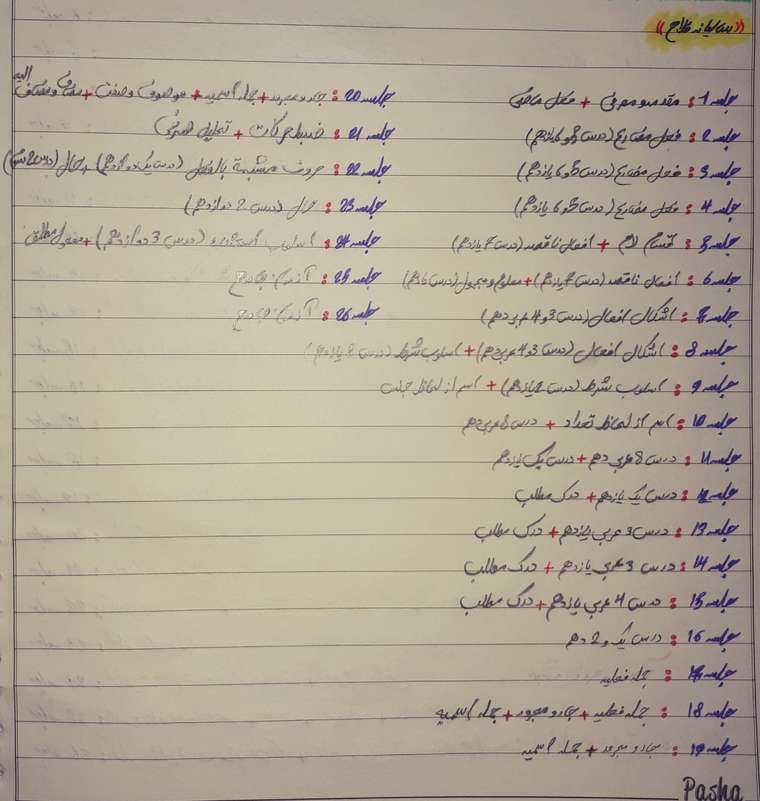 «سالیانه فلاح»
جلسه 1: مقدمه و معرفی + فعل ماضی
جلسه 2: فعل مضارع (درس 5 و 6 یازدهم)
جلسه 3: فعل مضارع (درس 5 و 6 یازدهم)
جلسه 4: فعل مضارع (درس 5 و 6 یازدهم)
جلسه 5: اقسام لام + افعال ناقصه (درس 7 یازدهم)
جلسه 6: افعال ناقصه (درس 7 یازدهم) + معلوم و مجهول (درس 6 دهم)
جلسه 7: اشکال افعال (درس 3 و 4 عربی دهم)
جلسه 8: اشکال افعال (درس 3 و 4 عربی دهم) + اسلوب شرط (درس 2 یازدهم)
جلسه 9: اسلوب شرط (درس 2 یازدهم) + اسم از لحاظ جنس
جلسه 10: اسم از لحاظ تعداد + درس 8 عربی دهم
جلسه 11: درس 8 عربی دهم + درس یک یازدهم
جلسه 12: درس یک یازدهم + درک مطلب
جلسه 13: درس 3 عربی یازدهم + درک مطلب
جلسه 14: درس 3 عربی یازدهم + درک مطلب
جلسه 15: درس 4 عربی یازدهم + درک مطلب
جلسه 16: درس یک و 2 دهم
جلسه 17: جمله فعلیه
جلسه 18: جمله فعلیه + جار و مجرور + جمله اسمیه
جلسه 19: جار و مجرور + جمله اسمیه
جلسه 20: جار و مجرور + جمله اسمیه + موصوف و صفت + مضاف و مضاف الیه
جلسه 21: ضبط حرکات + تحلیل صرفی
جلسه 22: حروف مشبهة بالفعل (درس یک دوازدهم) + حال (درس 2)
جلسه 23: حال (درس 2 دوازدهم)
جلسه 24: اسلوب استثناء (درس 3 دوازدهم) + مفعول مطلق
جلسه 25: آزمون جامع
جلسه 26: آزمون جامع
Pasha